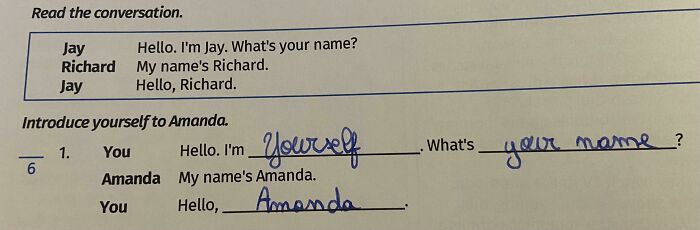 Read the conversation.
Jay Hello. I'm Jay. What's your name?
Richard My name's Richard.
Jay Hello, Richard.
Introduce yourself to Amanda.
6 1. You Hello. I'm Yourself. What's your name?
Amanda My name's Amanda.
You Hello, Amanda.